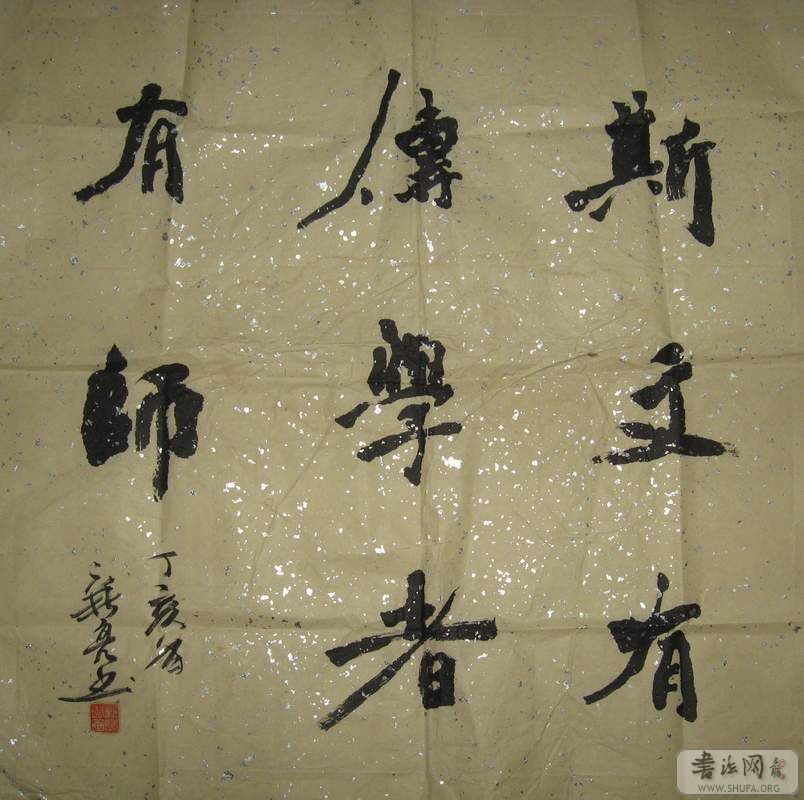 斯文有
傳學者
有師
丁亥
書法网
WWW.SHUFA.ORG